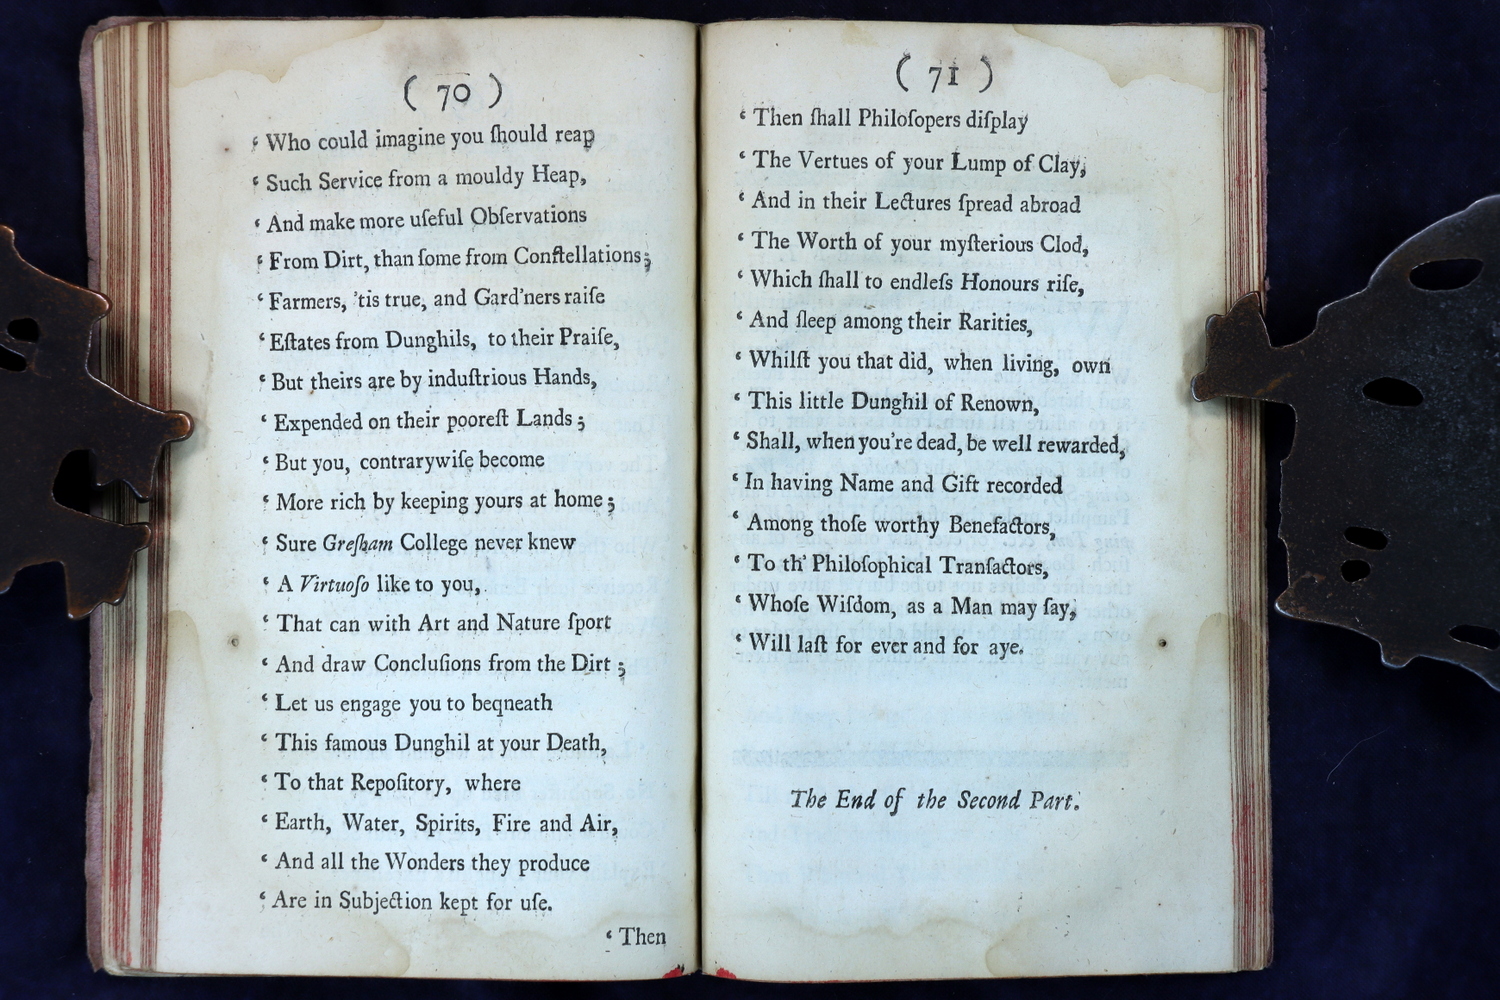 ( 70 )
‘ Who could imagine you ſhould reap
‘ Such Service from a mouldy Heap,
‘ And make more uſeful Obſervations
‘ From Dirt, than ſome from Conſtellations;
‘ Farmers, ’tis true, and Gard’ners raiſe
‘ Eſtates from Dunghils, to their Praiſe,
‘ But theirs are by induſtrious Hands,
‘ Expended on their pooreſt Lands ;
‘ But you, contrarywiſe become
‘ More rich by keeping yours at home ;
‘ Sure Greſham College never knew
‘ A Virtuoſo like to you,
‘ That can with Art and Nature ſport
‘ And draw Concluſions from the Dirt ;
‘ Let us engage you to beqneath
‘ This famous Dunghil at your Death,
‘ To that Repoſitory, where
‘ Earth, Water, Spirits, Fire and Air,
‘ And all the Wonders they produce
‘ Are in Subjection kept for uſe.
‘ Then
( 71 )
‘ Then ſhall Philoſopers diſplay
‘ The Vertues of your Lump of Clay,
‘ And in their Lectures ſpread abroad
‘ The Worth of your myſterious Clod,
‘ Which ſhall to endleſs Honours riſe,
‘ And ſleep among their Rarities,
‘ Whilſt you that did, when living, own
‘ This little Dunghil of Renown,
‘ Shall, when you’re dead, be well rewarded,
‘ In having Name and Gift recorded
‘ Among thoſe worthy Benefactors,
‘ To th’ Philoſophical Tranſactors,
‘ Whoſe Wiſdom, as a Man may ſay,
‘ Will laſt for ever and for aye.
The End of the Second Part.